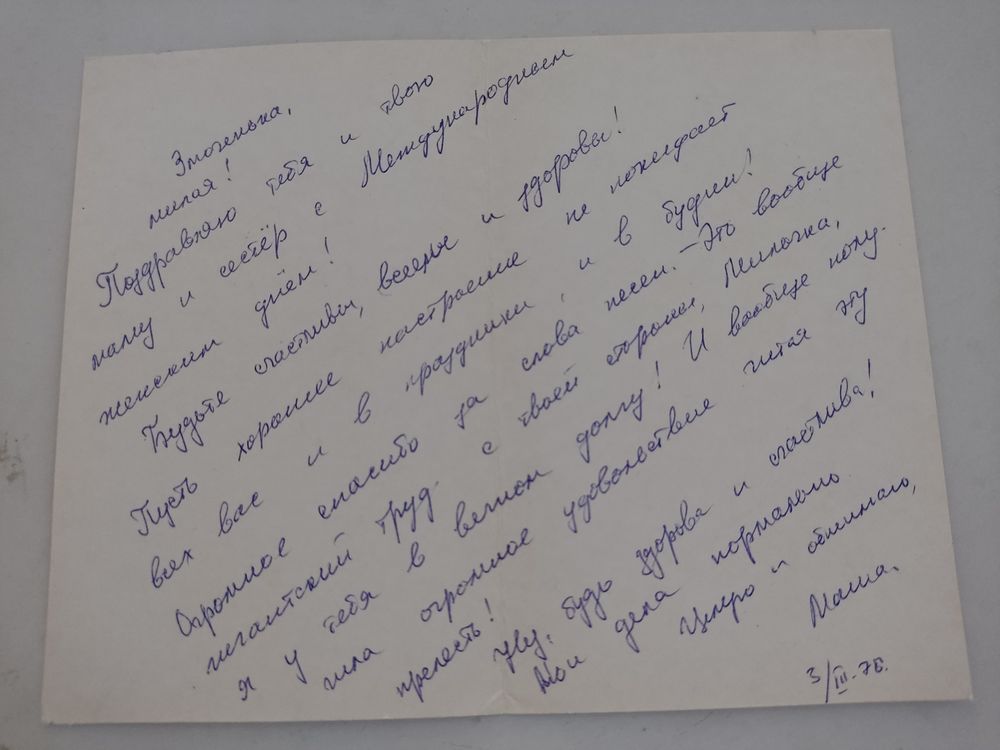 Эмоченька,
милая!
Поздравляю тебя и твою
маму и сестёр с Международным
женским днём!
Будьте счастливы, веселы и здоровы!
Пусть хорошее настроение не покидает
всех вас и в праздники, и в будни!
Огромное спасибо за слова песен. – Это вообще
гигантский труд с твоей стороны, Милочка,
я у тебя в вечном долгу! И вообще полу-
чила огромное удовольствие читая эту
прелесть!
Ну, будь здорова и счастлива!
Мои дела нормально
Целую и обнимаю,
Маша.
3/III-78.